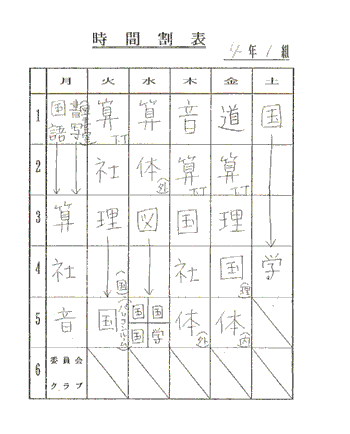 時間割表
4年1組
月 火 水 木 金 土
1 国語 書写 算 TT 算 音 道 国
2 社 体(外) 算 TT 算 TT
3 算 理 図 国 理
4 社 社 国(理) 学
5 音 国 (国) (パソコンルーム) 国 国 国 学 体(外) 体(内)
6 委員会
クラブ